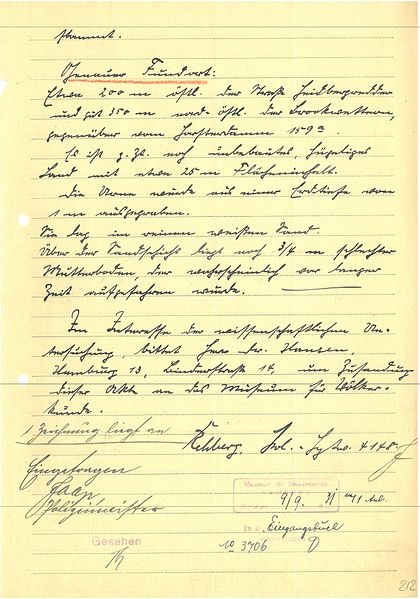 stammt.
Genauer Fundort:
Etwa 200 m östl. der Straße Heidbergredder
und gut 350 m nord-östl. der Brookwettern,
gegenüber vom Horsterdamm 159a.
Es ist z. Zt. noch unbebautes, hügeliges
Land mit etwa 25 m Flächeninhalt.
Die Urne wurde aus einer Erdtiefe von
1 m ausgegraben.
Sie lag im reinen weißen Sand.
Über der Sandschicht liegt noch 3/4 m schlechter
Mutterboden, der wahrscheinlich vor langer
Zeit aufgefahren wurde.
Im Interesse der wissenschaftlichen Un-
tersuchung, bittet Herr Dr. Hansen
Hamburg 13, Binderstraße 14, um Zusendung
dieser Akte an das Museum für Völker-
kunde.
1 Zeichnung liegt an
Rehberg,
Eingetragen
Polizeimeister
Gesehen
Museum für Völkerkunde
9/9. 31
10 3706
212